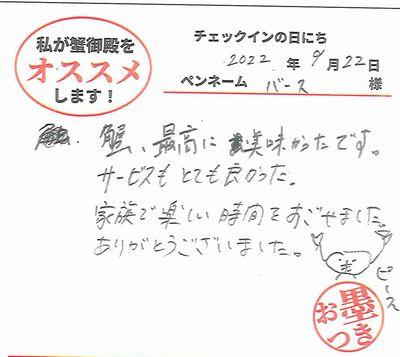 私が蟹御殿を
オススメ
します！
チェックインの日にち
2022年9月22日
ペンネーム バース 様
蟹、最高に美味かったです。
サービスもとても良かった。
家族で楽しい時間をすごせました。
ありがとうございました。
ピース
お墨つき